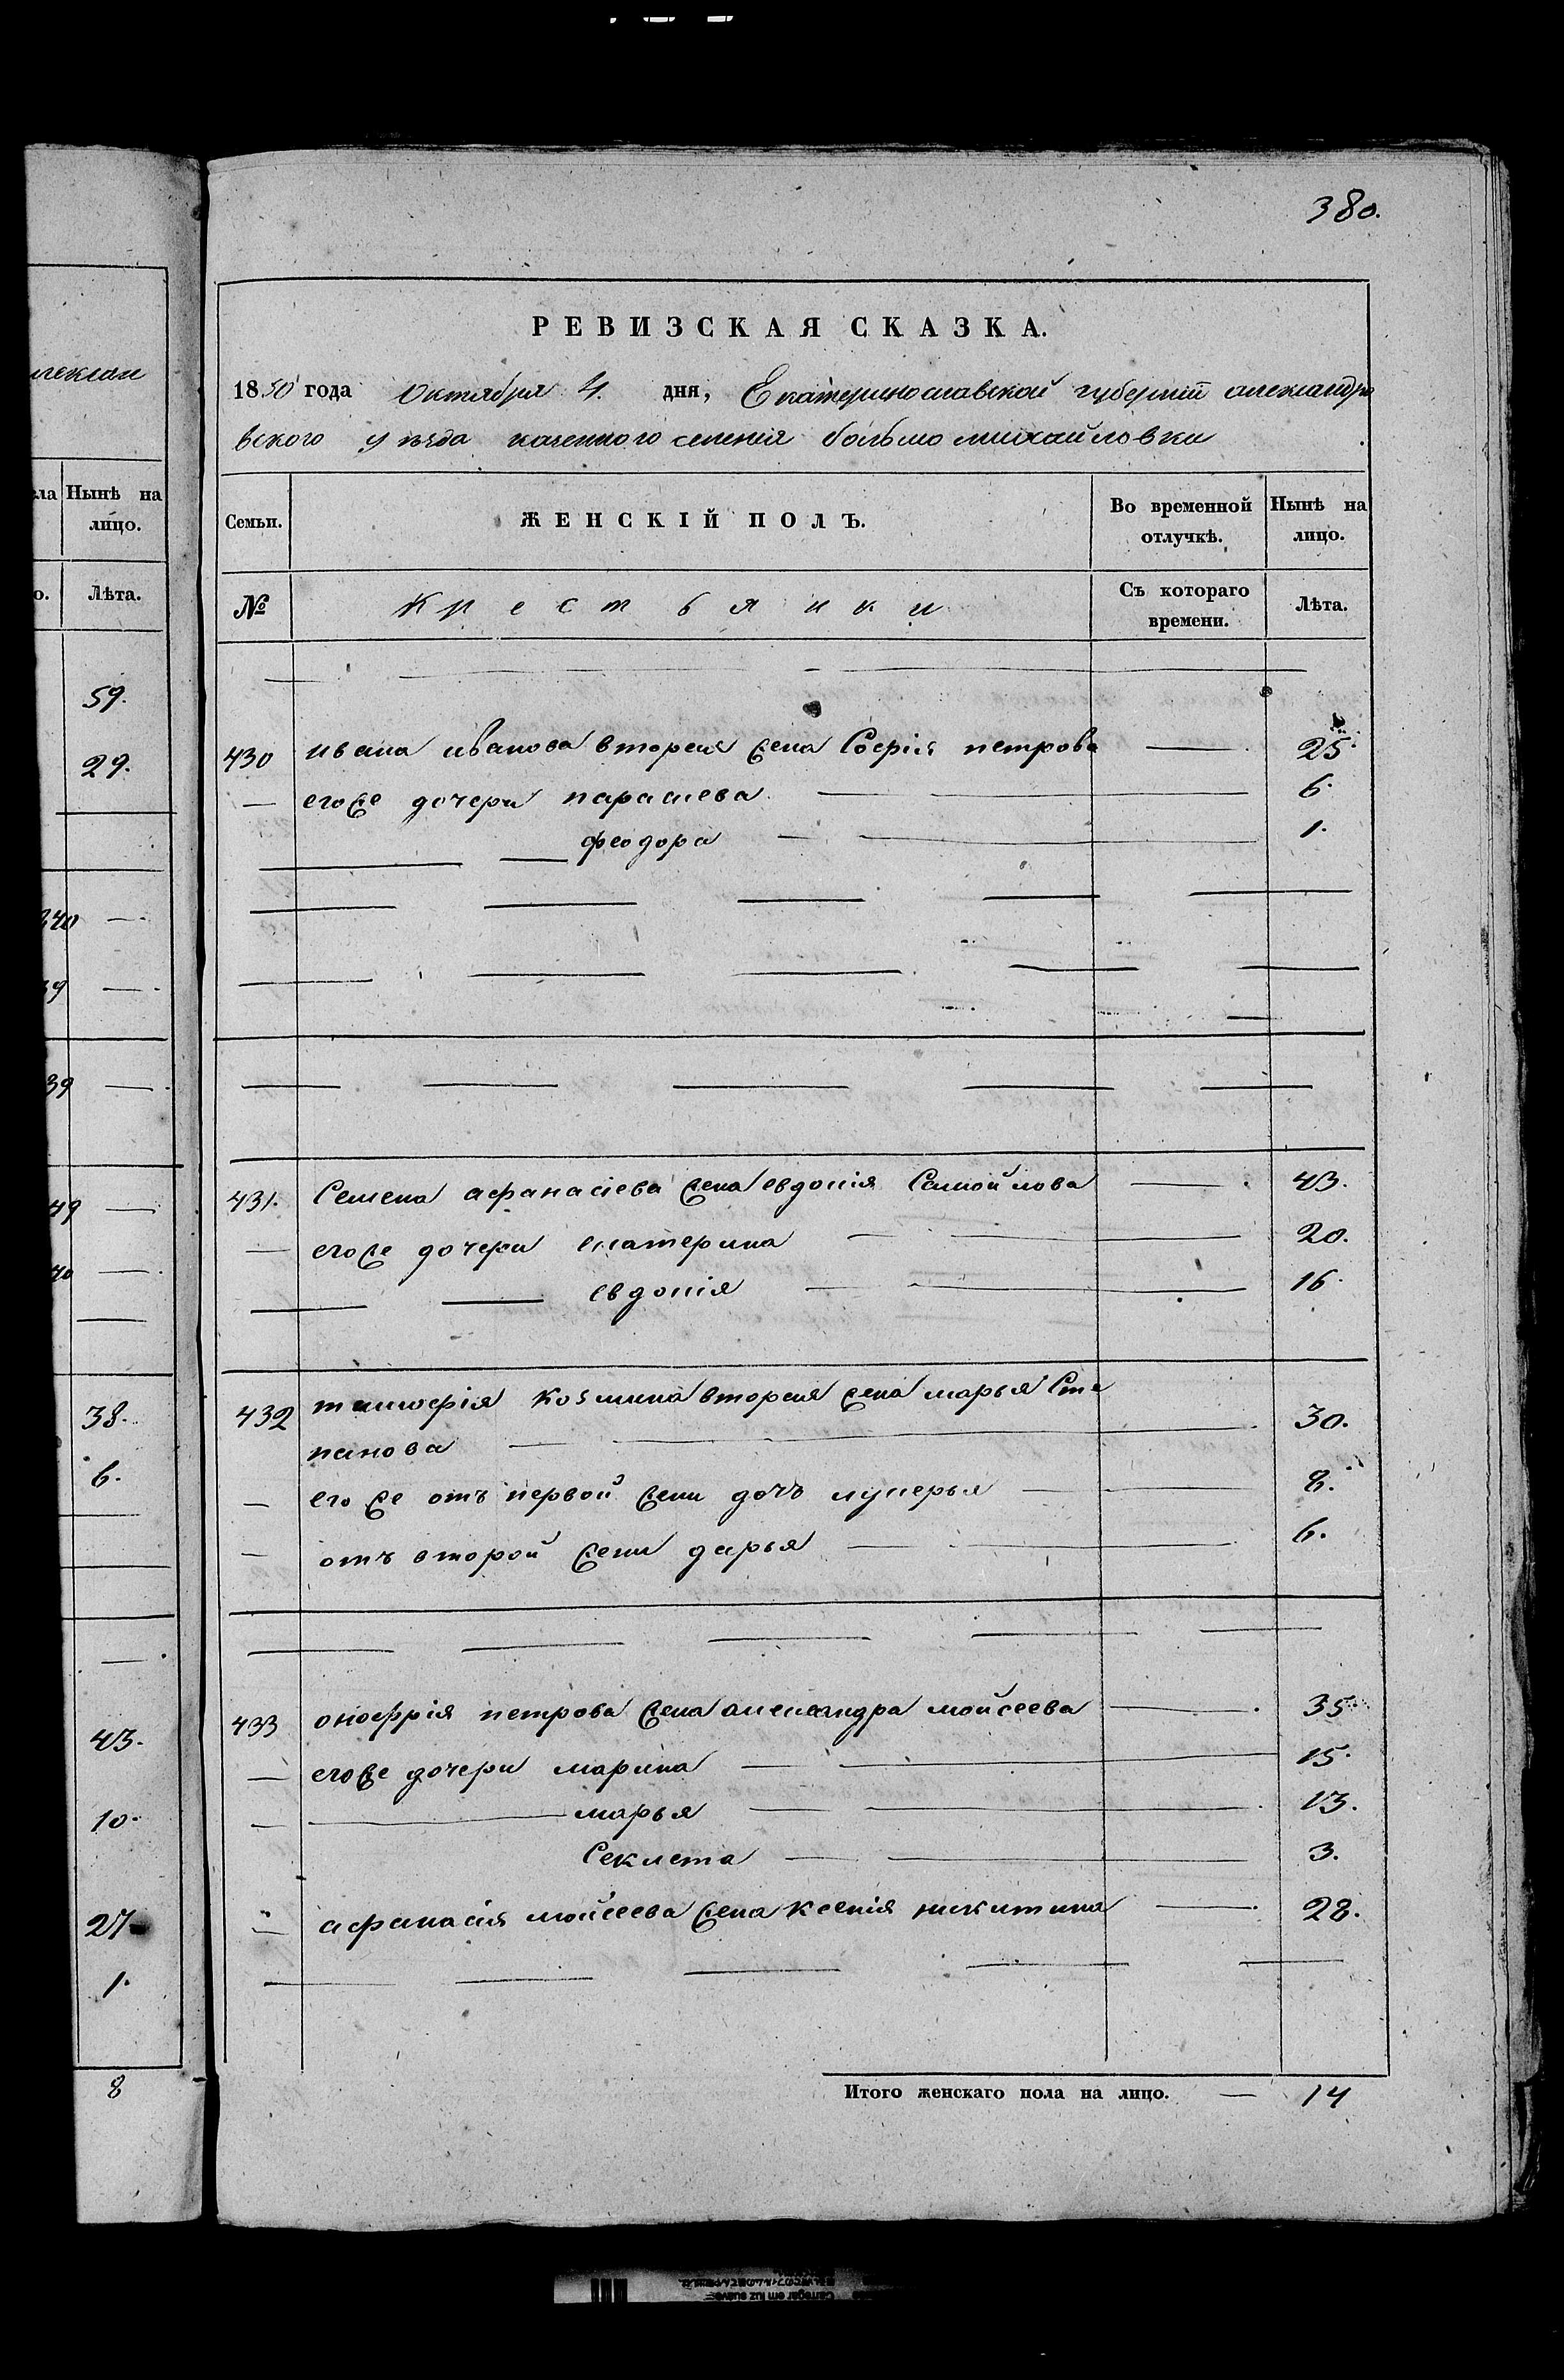 380.
РЕВИЗСКАЯ СКАЗКА.
1850 года октября 4. дня, Екатеринославской губерніи александро
вского уѣзда казенного селенія больше михайловки
Семьи.
ЖЕНСКІЙ ПОЛЪ.
Во временной отлучкѣ.
Нынѣ на лицо.
№
Крестьянки
Съ котораго времени.
Лѣта.
430 ивана иванова вторая жена Софія петрова — 25.
— егоже дочери параскева — 6.
— феодора — 1.
431. Семена афанасіева жена евдокія Самойлова — 43.
— егоже дочери екатерина — 20.
— евдокія — 16.
432 тимофія козмина вторая жена марья Сте
панова — 30.
— его же отъ первой жены дочь лукерья — 8.
— отъ второй жены дарья — 6.
433 онофрія петрова жена александра мойсеева — 35.
— егоже дочери марина — 15.
— марья — 13.
Секлета — 3.
— афанасія мойсеева жена ксенія никитина — 28.
Итого женскаго пола на лицо. — 14
Нынѣ на лицо.
Лѣта.
59.
29.
38.
6.
43.
10.
27
1.
8